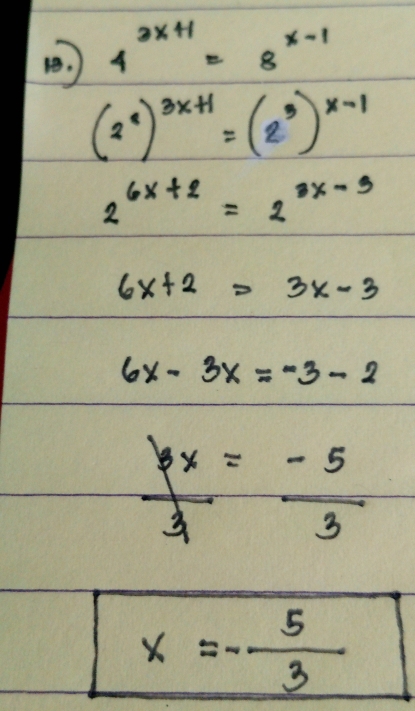 13.) 4^{3x+1} = 8^{x-1}
(2^2)^{3x+1} = (2^3)^{x-1}
2^{6x+2} = 2^{3x-3}
6x+2 = 3x-3
6x - 3x = -3 - 2
3x/3 = -5/3
x = -5/3